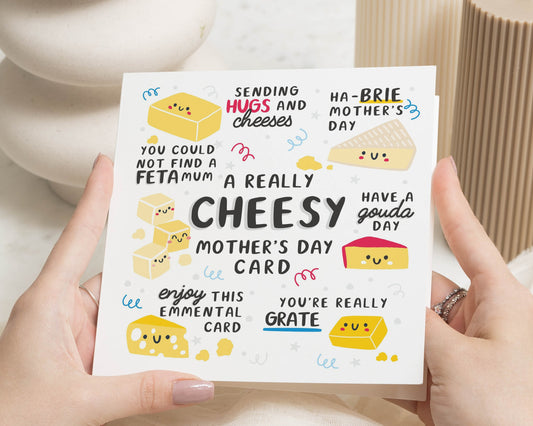 SENDING
HUGS AND
cheeses
HA-BRIE
MOTHER'S
DAY
YOU COULD
NOT FIND A
FETA MUM
A REALLY
CHEESY
MOTHER'S DAY
CARD
HAVE A
gouda
DAY
enjoy THIS
EMMENTAL
CARD
YOU'RE REALLY
GRATE